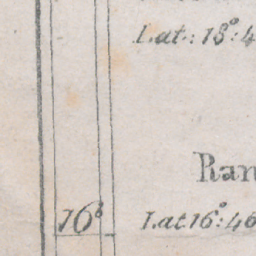 Lat: 18°:4
Ran
16° Lat 16°:46